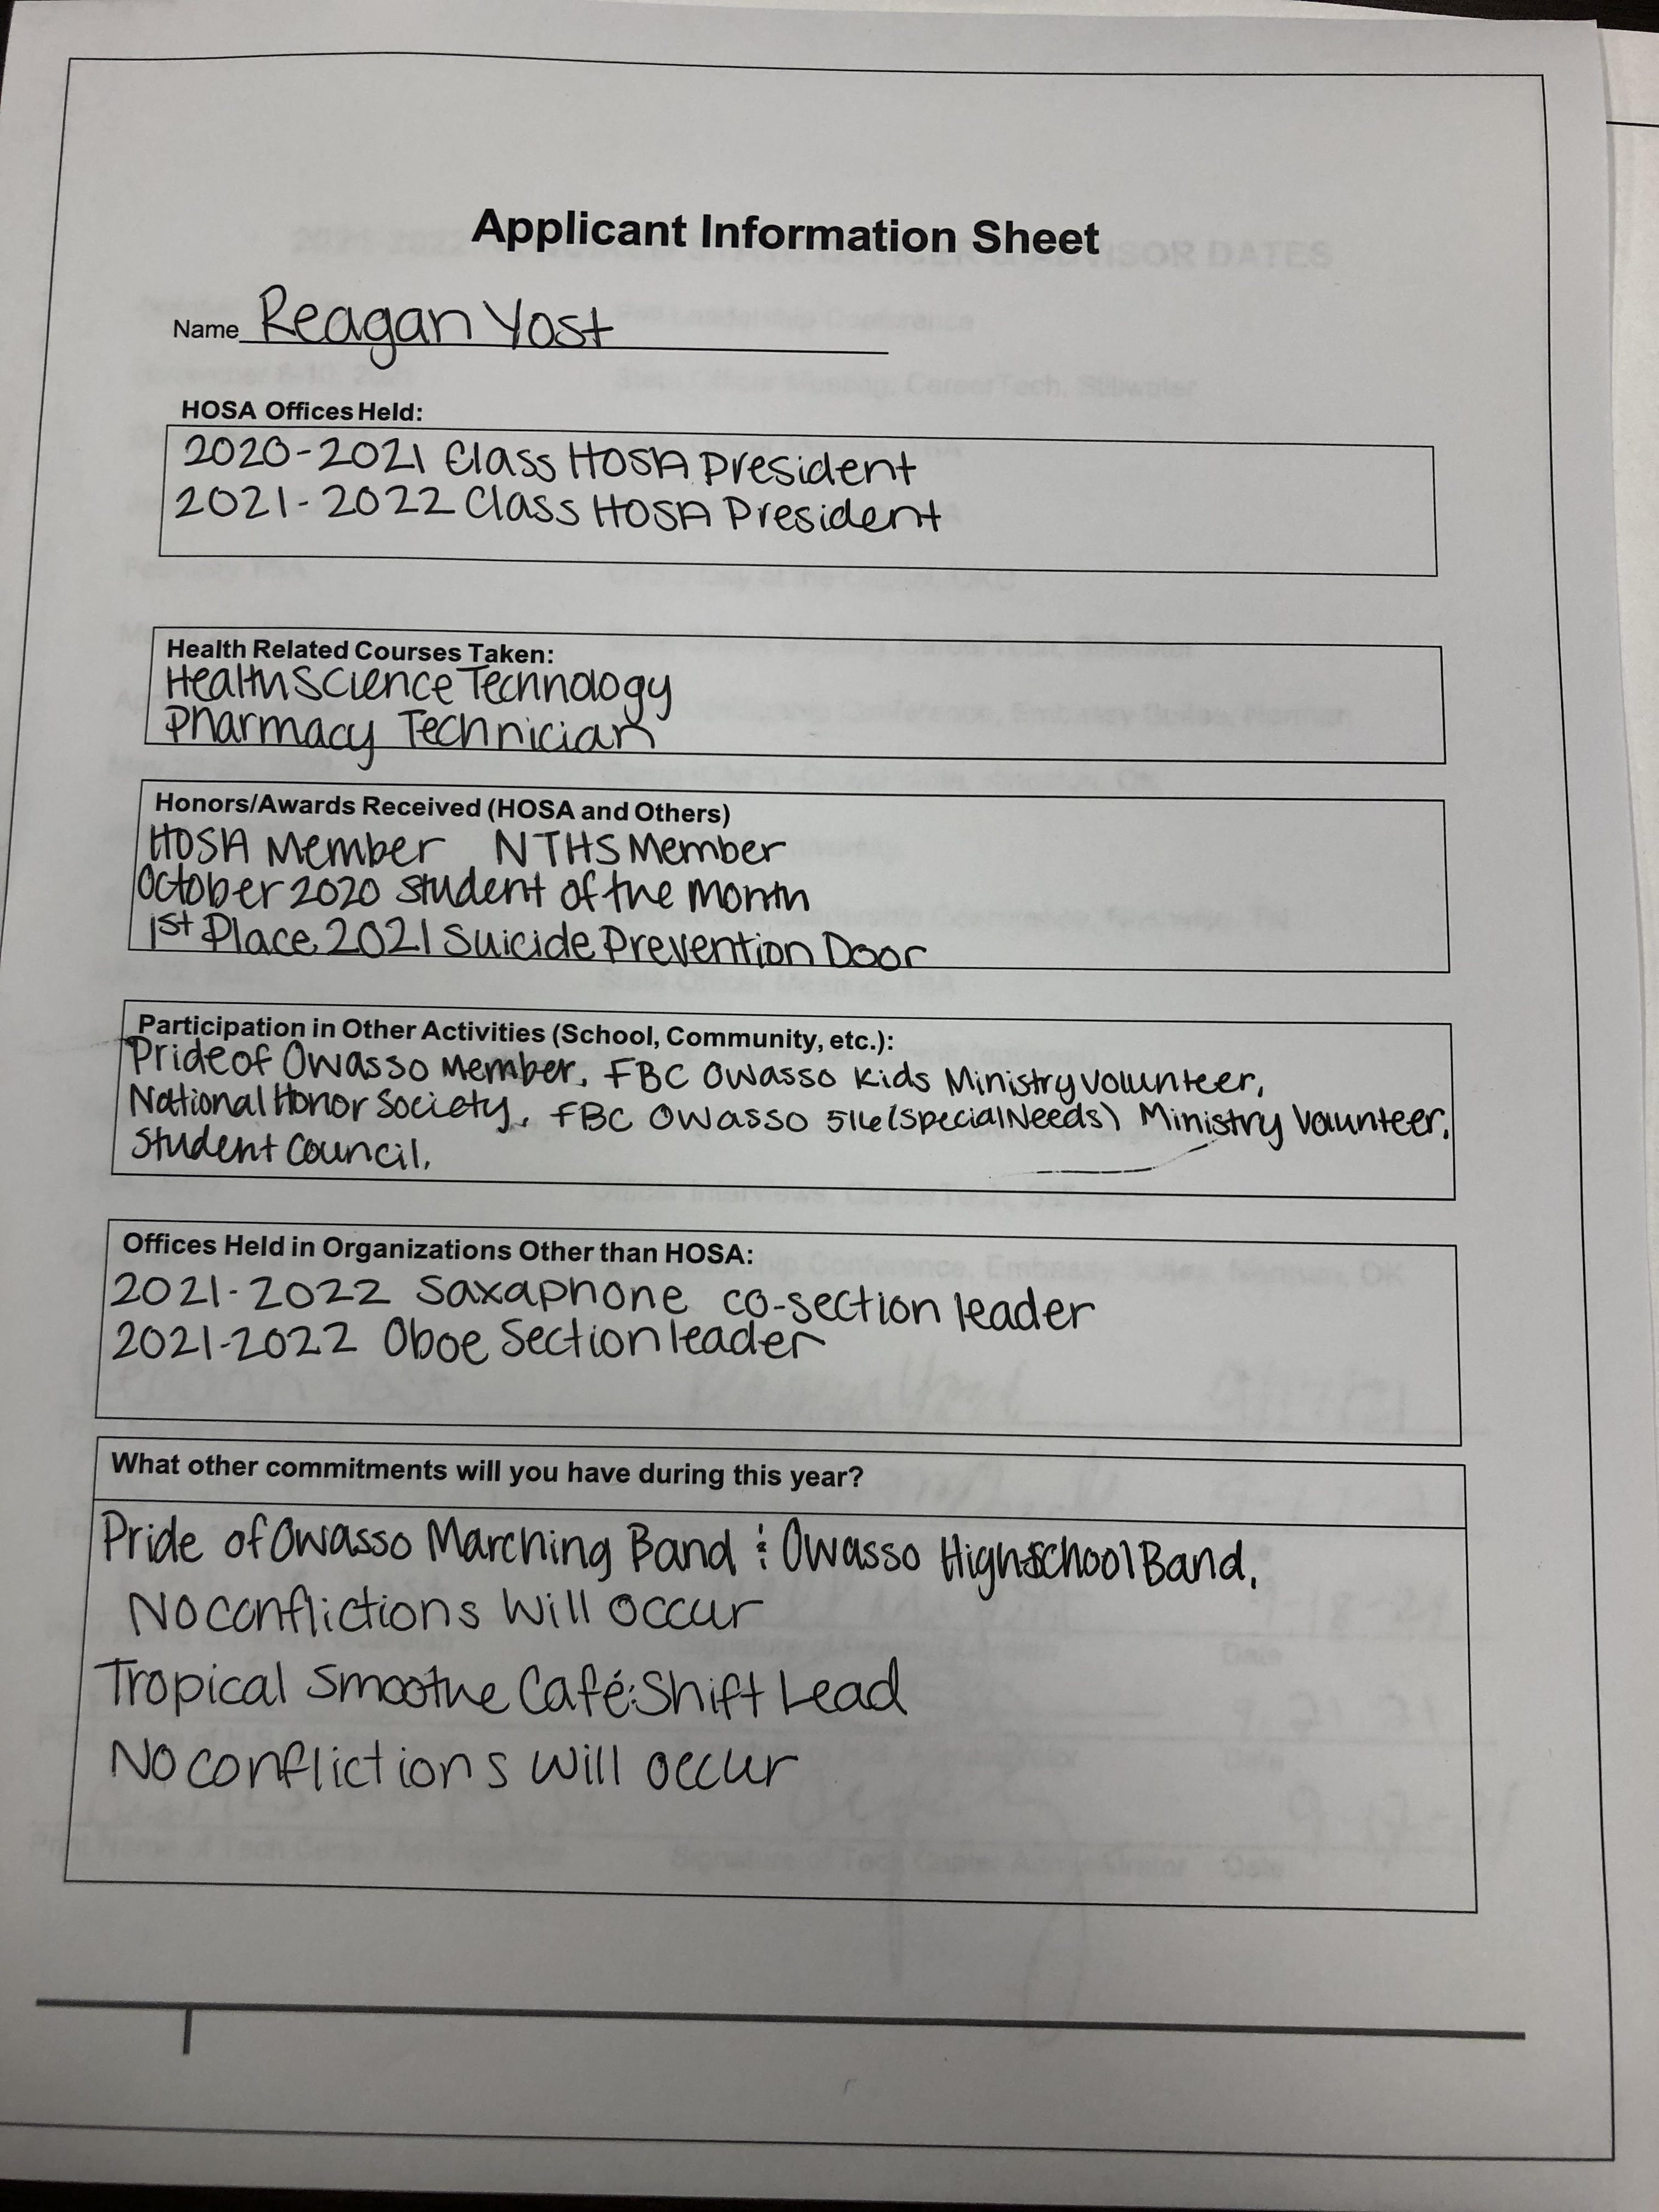 Applicant Information Sheet
Name Reagan Yost
HOSA Offices Held:
2020-2021 Class HOSA President
2021-2022 Class HOSA President
Health Related Courses Taken:
Health Science Technology
Pharmacy Technician
Honors/Awards Received (HOSA and Others)
HOSA Member, NTHS Member
October 2020 Student of the Month
1st Place 2021 Suicide Prevention Door
Participation in Other Activities (School, Community, etc.):
Pride of Owasso Member, FBC Owasso Kids Ministry volunteer,
National Honor Society, FBC Owasso 516 (Special Needs) Ministry Volunteer,
Student Council,
Offices Held in Organizations Other than HOSA:
2021-2022 Saxaphone co-section leader
2021-2022 Oboe Section leader
What other commitments will you have during this year?
Pride of Owasso Marching Band & Owasso High School Band,
No conflictions will occur
Tropical Smoothe Café: Shift Lead
No conflictions will occur